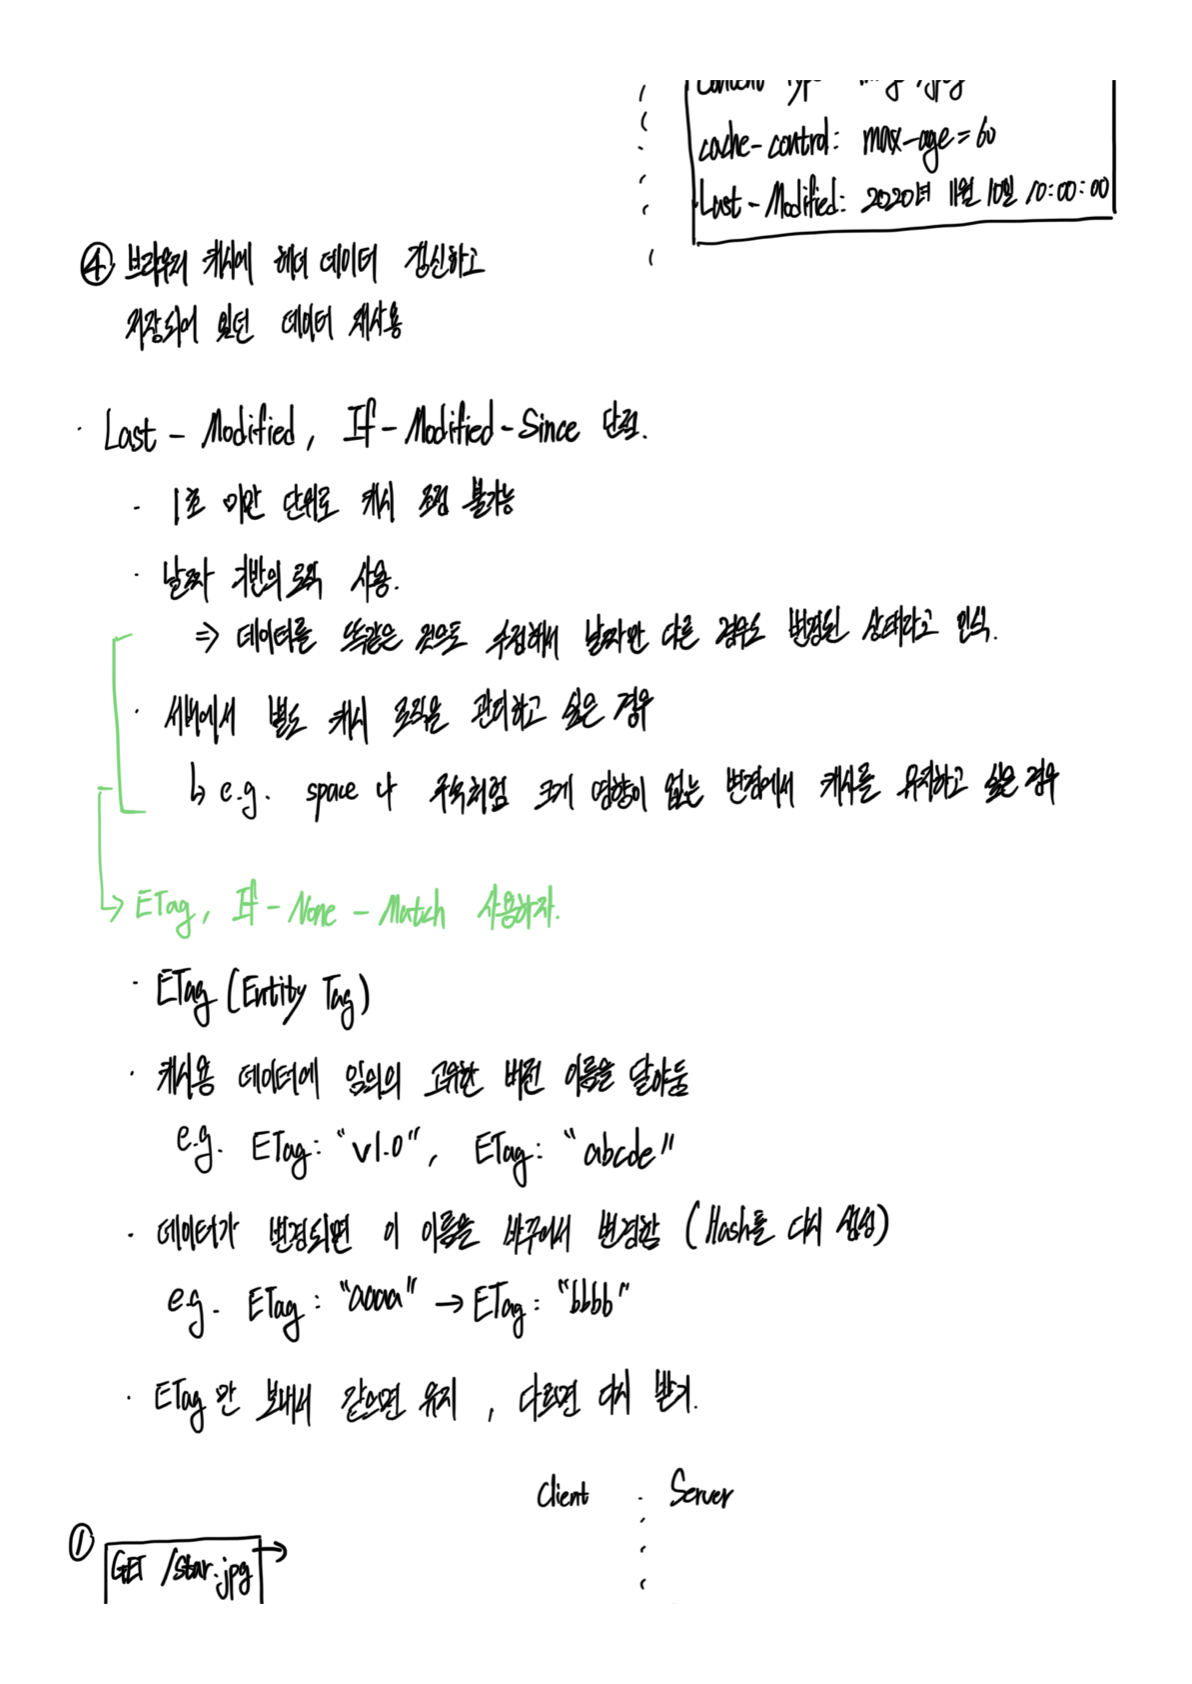 cache-control: max-age=60
Last-Modified: 2020년 11월 10일 10:00:00
④ 브라우저 캐시에 헤더 데이터 갱신하고
저장되어 있던 데이터 재사용
· Last-Modified, If-Modified-Since 단점.
· 1초 미만 단위로 캐시 조정 불가능
· 날짜 기반의 로직 사용.
⇒ 데이터를 똑같은 것으로 수정해서 날짜만 다른 경우도 변경된 상태라고 인식.
· 서버에서 별도 캐시 로직을 관리하고 싶은 경우
↳ e.g. space 나 주석처럼 크게 영향이 없는 변경에서 캐시를 유지하고 싶은 경우
→ ETag, If-None-Match 사용하자.
· ETag (Entity Tag)
· 캐시용 데이터에 임의의 고유한 버전 이름을 달아둠
e.g. ETag: "v1.0", ETag: "abcde"
· 데이터가 변경되면 이 이름을 바꾸어서 변경함 (Hash를 다시 생성)
e.g. ETag: "aaaa" → ETag: "bbbb"
· ETag만 보내서 같으면 유지, 다르면 다시 받기.
Client Server
① GET /star.jpg →